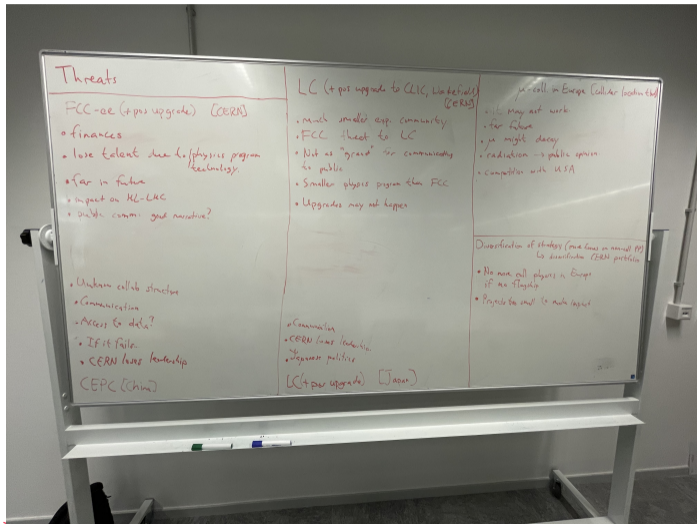 Threats
FCC-ee (+ pos upgrade) [CERN]
• finances
• lose talent due to / physics program
technology.
• far in future
• impact on HL-LHC
• public comm: good narrative?
• Unknown collab structure
• Communication
• Access to data?
• If it fails
• CERN loses leadership
CEPC [China]
LC (+ pos upgrade to CLIC, Wakefield)
[CERN]
• much smaller exp. community
• FCC threat to LC
• Not as "grand" for communicating
to public
• Smaller physics program than FCC
• Upgrades may not happen
• Communication
• CERN loses leadership
• Japanese politics
LC (+ pos upgrade) [Japan]
μ-coll in Europe Collider
• it may not work
• far future
• μ might decay
• radiation → public opinion
• competition with USA
Diversification of strategy (more focus on non-coll PP)
↳ diversification CERN portfolio
• No more coll physics in Europe
if no flagship
• Projects too small to make impact